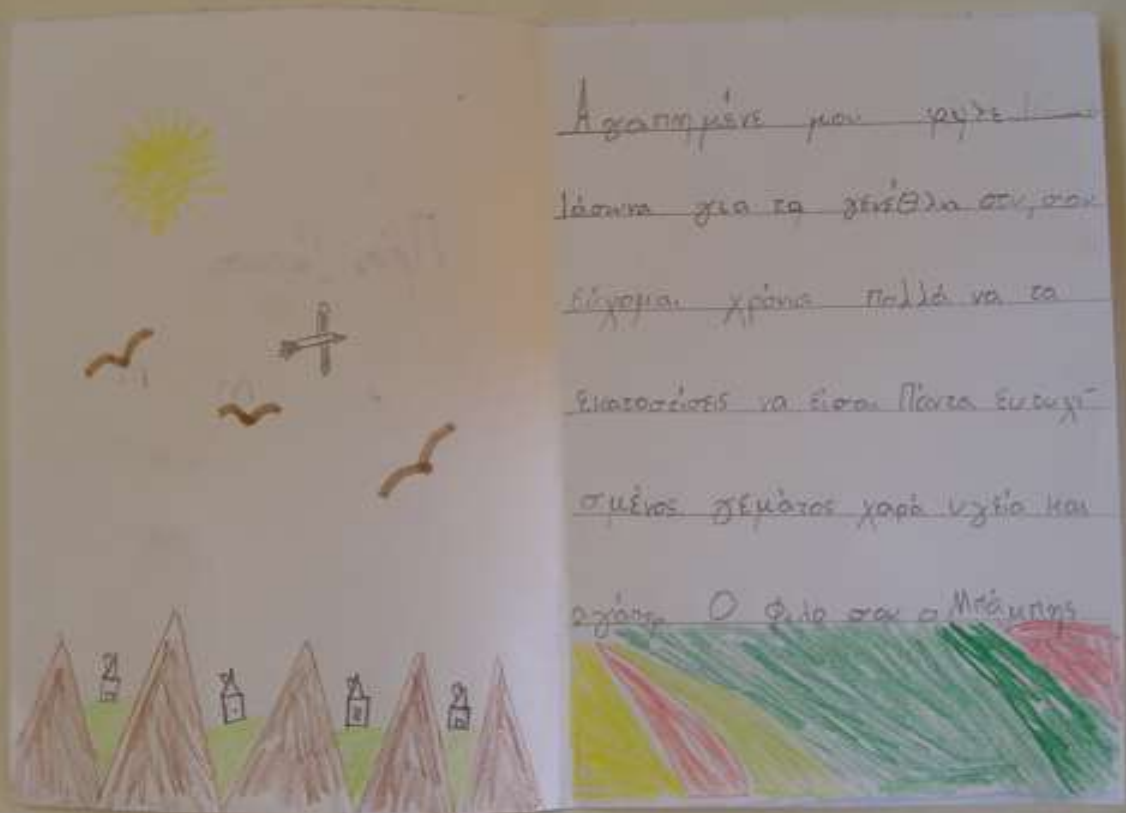 Αγαπημένε μου φιλε!
Ιάσωνα για τα γενέθλα στυ, σου
Εύχομαι χρόνια Πολλά να τα
Εκατοστίσεις να είσαι Πάντα Ευτυχι-
σμένος γεμάτος χαρά υγεία και
αγάπη Ο Φιλο σου ο Μπάμπης